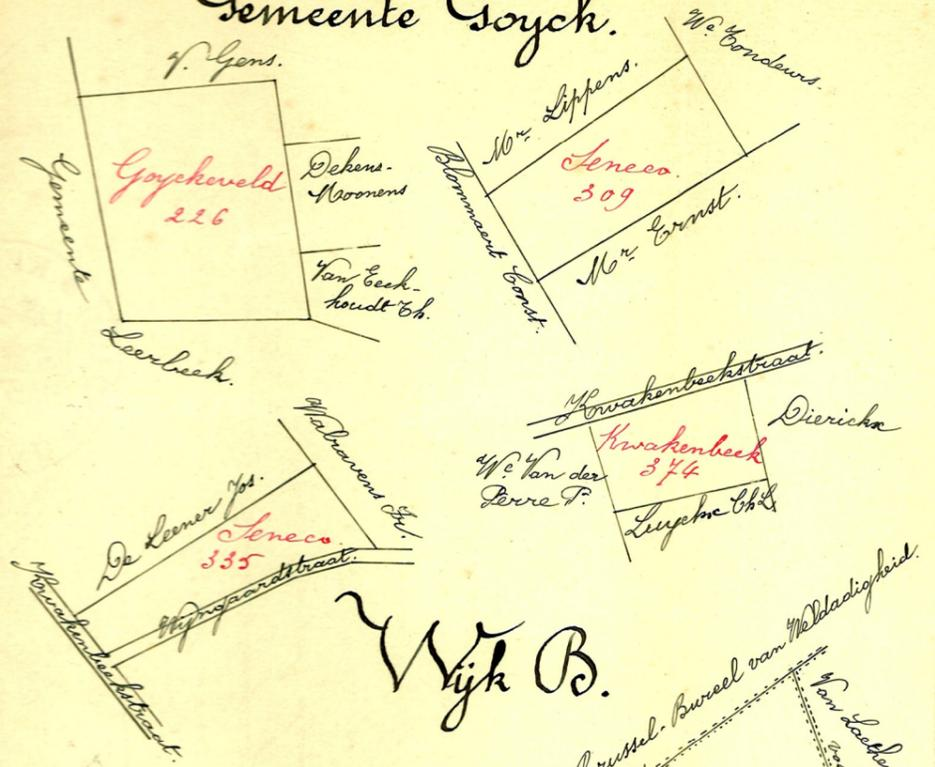 Gemeente Goyck.
V. Gens.
Gemeente
Goyckeveld
226
Dekens-
Moonens
Van Eeck-
houdt Th.
Leerbeek.
We Tondeurs.
Mr. Lippens.
Blommaert Const.
Seneca.
309
Mr. Ernst.
Kwakenbeekstraat.
We Van der
Perre F.
Kwakenbeek
374
Dierickx
Luyckx Ch L
Walravens Fr.
De Leener Jos.
Seneca
335
Wyngaardstraat.
Kwakenbeekstraat.
Wijk B.
Brussel-Bureel van Weldadigheid.
Van Laethe